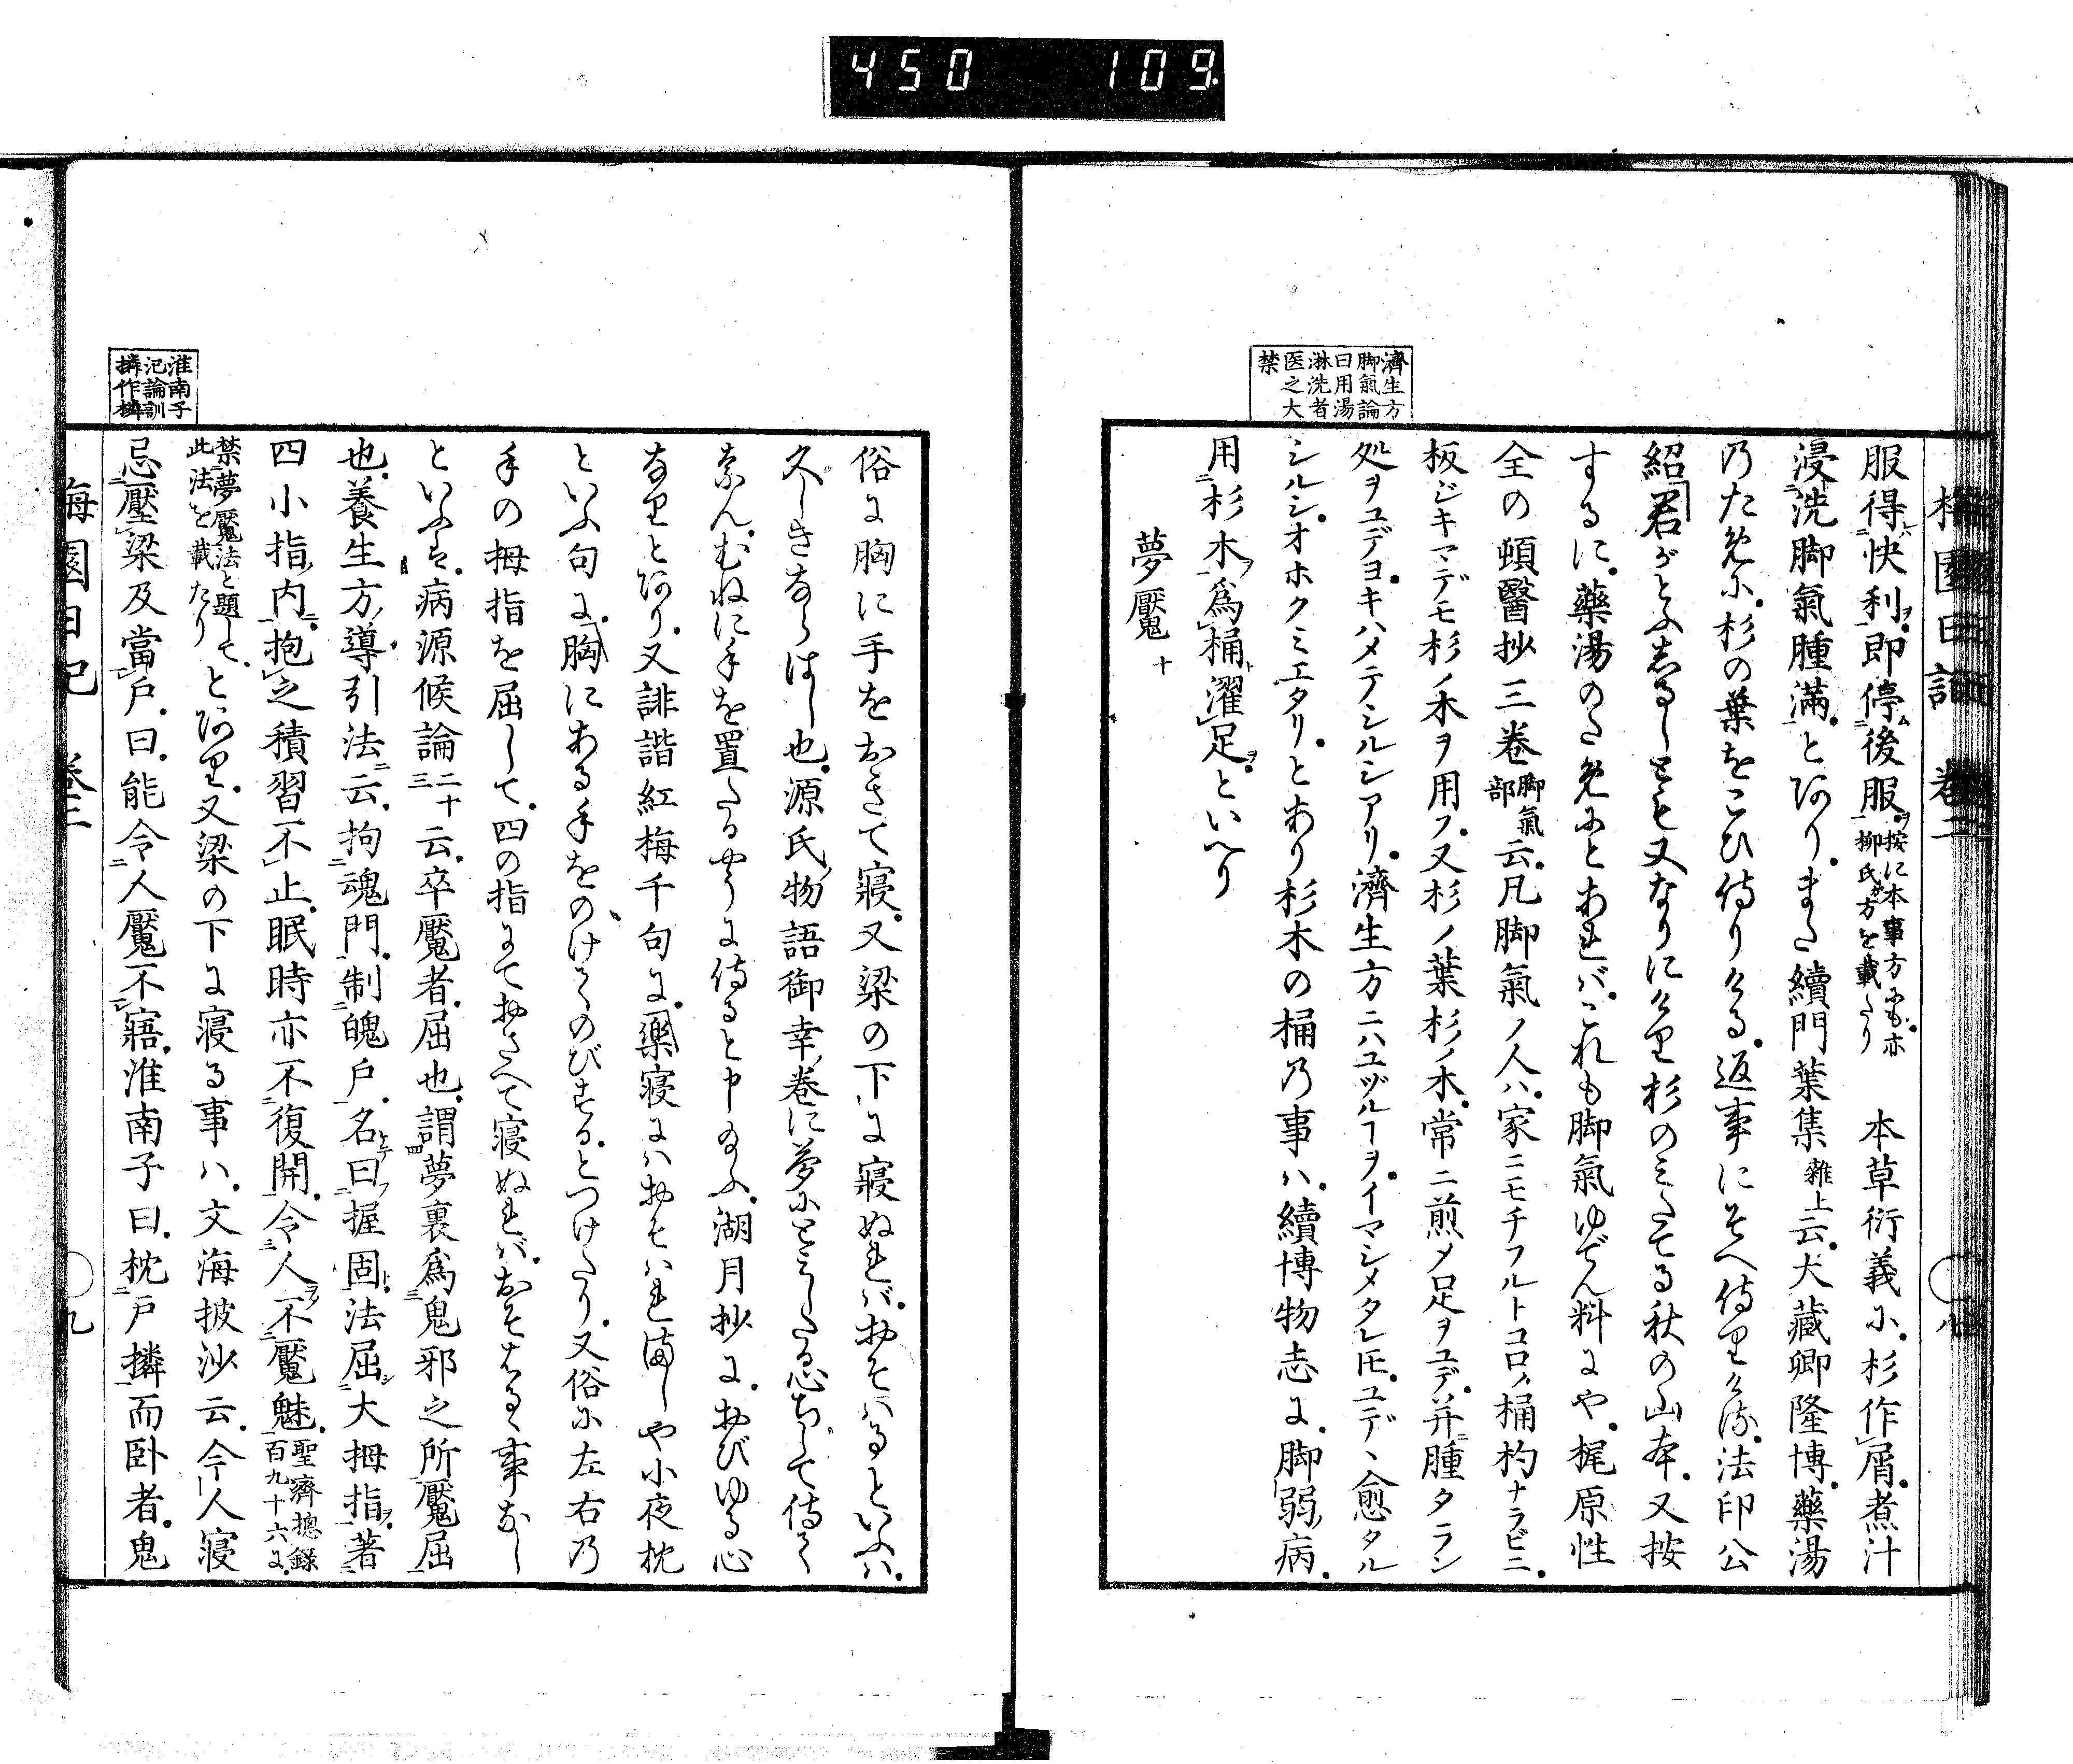 450 109
梅園日記 卷二
服得快利即停後服按に本事方にも亦柳氏方を載たり 本草衍義に杉作屑煮汁
浸洗脚氣腫滿とあり また續門葉集雜上云大藏卿隆博藥湯
のために杉の葉をこひ侍りける返事にそへ侍りける法印公
紹君がとふしるしとも又なりにけり杉のみたてる秋の山本又按
するに藥湯のためにとあればこれも脚氣ゆでん料にや梶原性
全の頓醫抄三卷脚氣部云凡脚氣ノ人ハ家ニモチフルトコロノ桶杓ナラビニ
板ジキマデモ杉ノ木ヲ用フ又杉ノ葉杉ノ木常ニ煎メ足ヲユデ并腫タラン
処ヲユデヨキハメテシルシアリ濟生方ニハユヅルヿヲイマシメタレ𪜈ユデヽ愈タル
シルシオホクミエタリとあり杉木の桶の事ハ續博物志に脚弱病
用杉木爲桶濯足といへり
夢魘 十
濟生方
脚氣論
曰用湯
淋洗者
医之大
禁
八
俗に胸に手をおきて寢又梁の下に寢ぬればおそはるといふハ
久しきならはし也源氏物語御幸卷に夢にとみしたる心ちして侍てなん
むねに手を置たるやうに侍ると申給ふ湖月抄におびゆる心
なりとあり又誹諧紅梅千句に藥寢にハおそハれまじや小夜枕
といふ句に胸にある手をのけてのびするとつけたり又俗に左右の
手の拇指を屈して四の指にておさへて寢ぬればおそはるゝ事なし
といふは病源候論二十三云卒魘者屈也謂夢裏爲鬼邪之所魘屈
也養生方導引法云拘魂門制魄戶名曰握固法屈大拇指著
四小指内抱之積習不止眠時亦不復開令人不魘魅聖濟摠錄百九十六に
禁夢魘法と題して此法を載たりとあり又梁の下に寢る事ハ文海披沙云今人寢
忌壓梁及當戶曰能令人魘不寤淮南子曰枕戶橉而臥者鬼
淮南子
氾論訓
橉作㯠
梅園日記 卷二
九